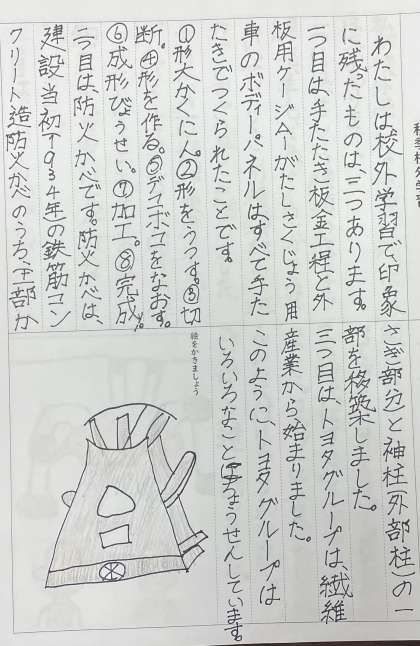 わたしは校外学習で、印象
に残ったものは、三つあります。
一つ目は、手たたき板金工程と外
板用ゲージAがたしさくじょう用
車のボディーパネルはすべて手た
たきでつくられたことです。
①形大かくにん。②形をうつす。③切
断。④形を作る。⑤デコボコをなおす。
⑥成形びょうせい。⑦加工。⑧完成。
二つ目は、防火かべです。防火かべは、
建設当初1934年の鉄筋コン
クリート造防火かべのうち、下部(か
さぎ部分)と神柱(外部柱)の一
部を移築しました。
三つ目は、トヨタグループは、繊維
産業から始まりました。
このように、トヨタグループは
いろいろなことにちょうせんしています。
絵をかきましょう